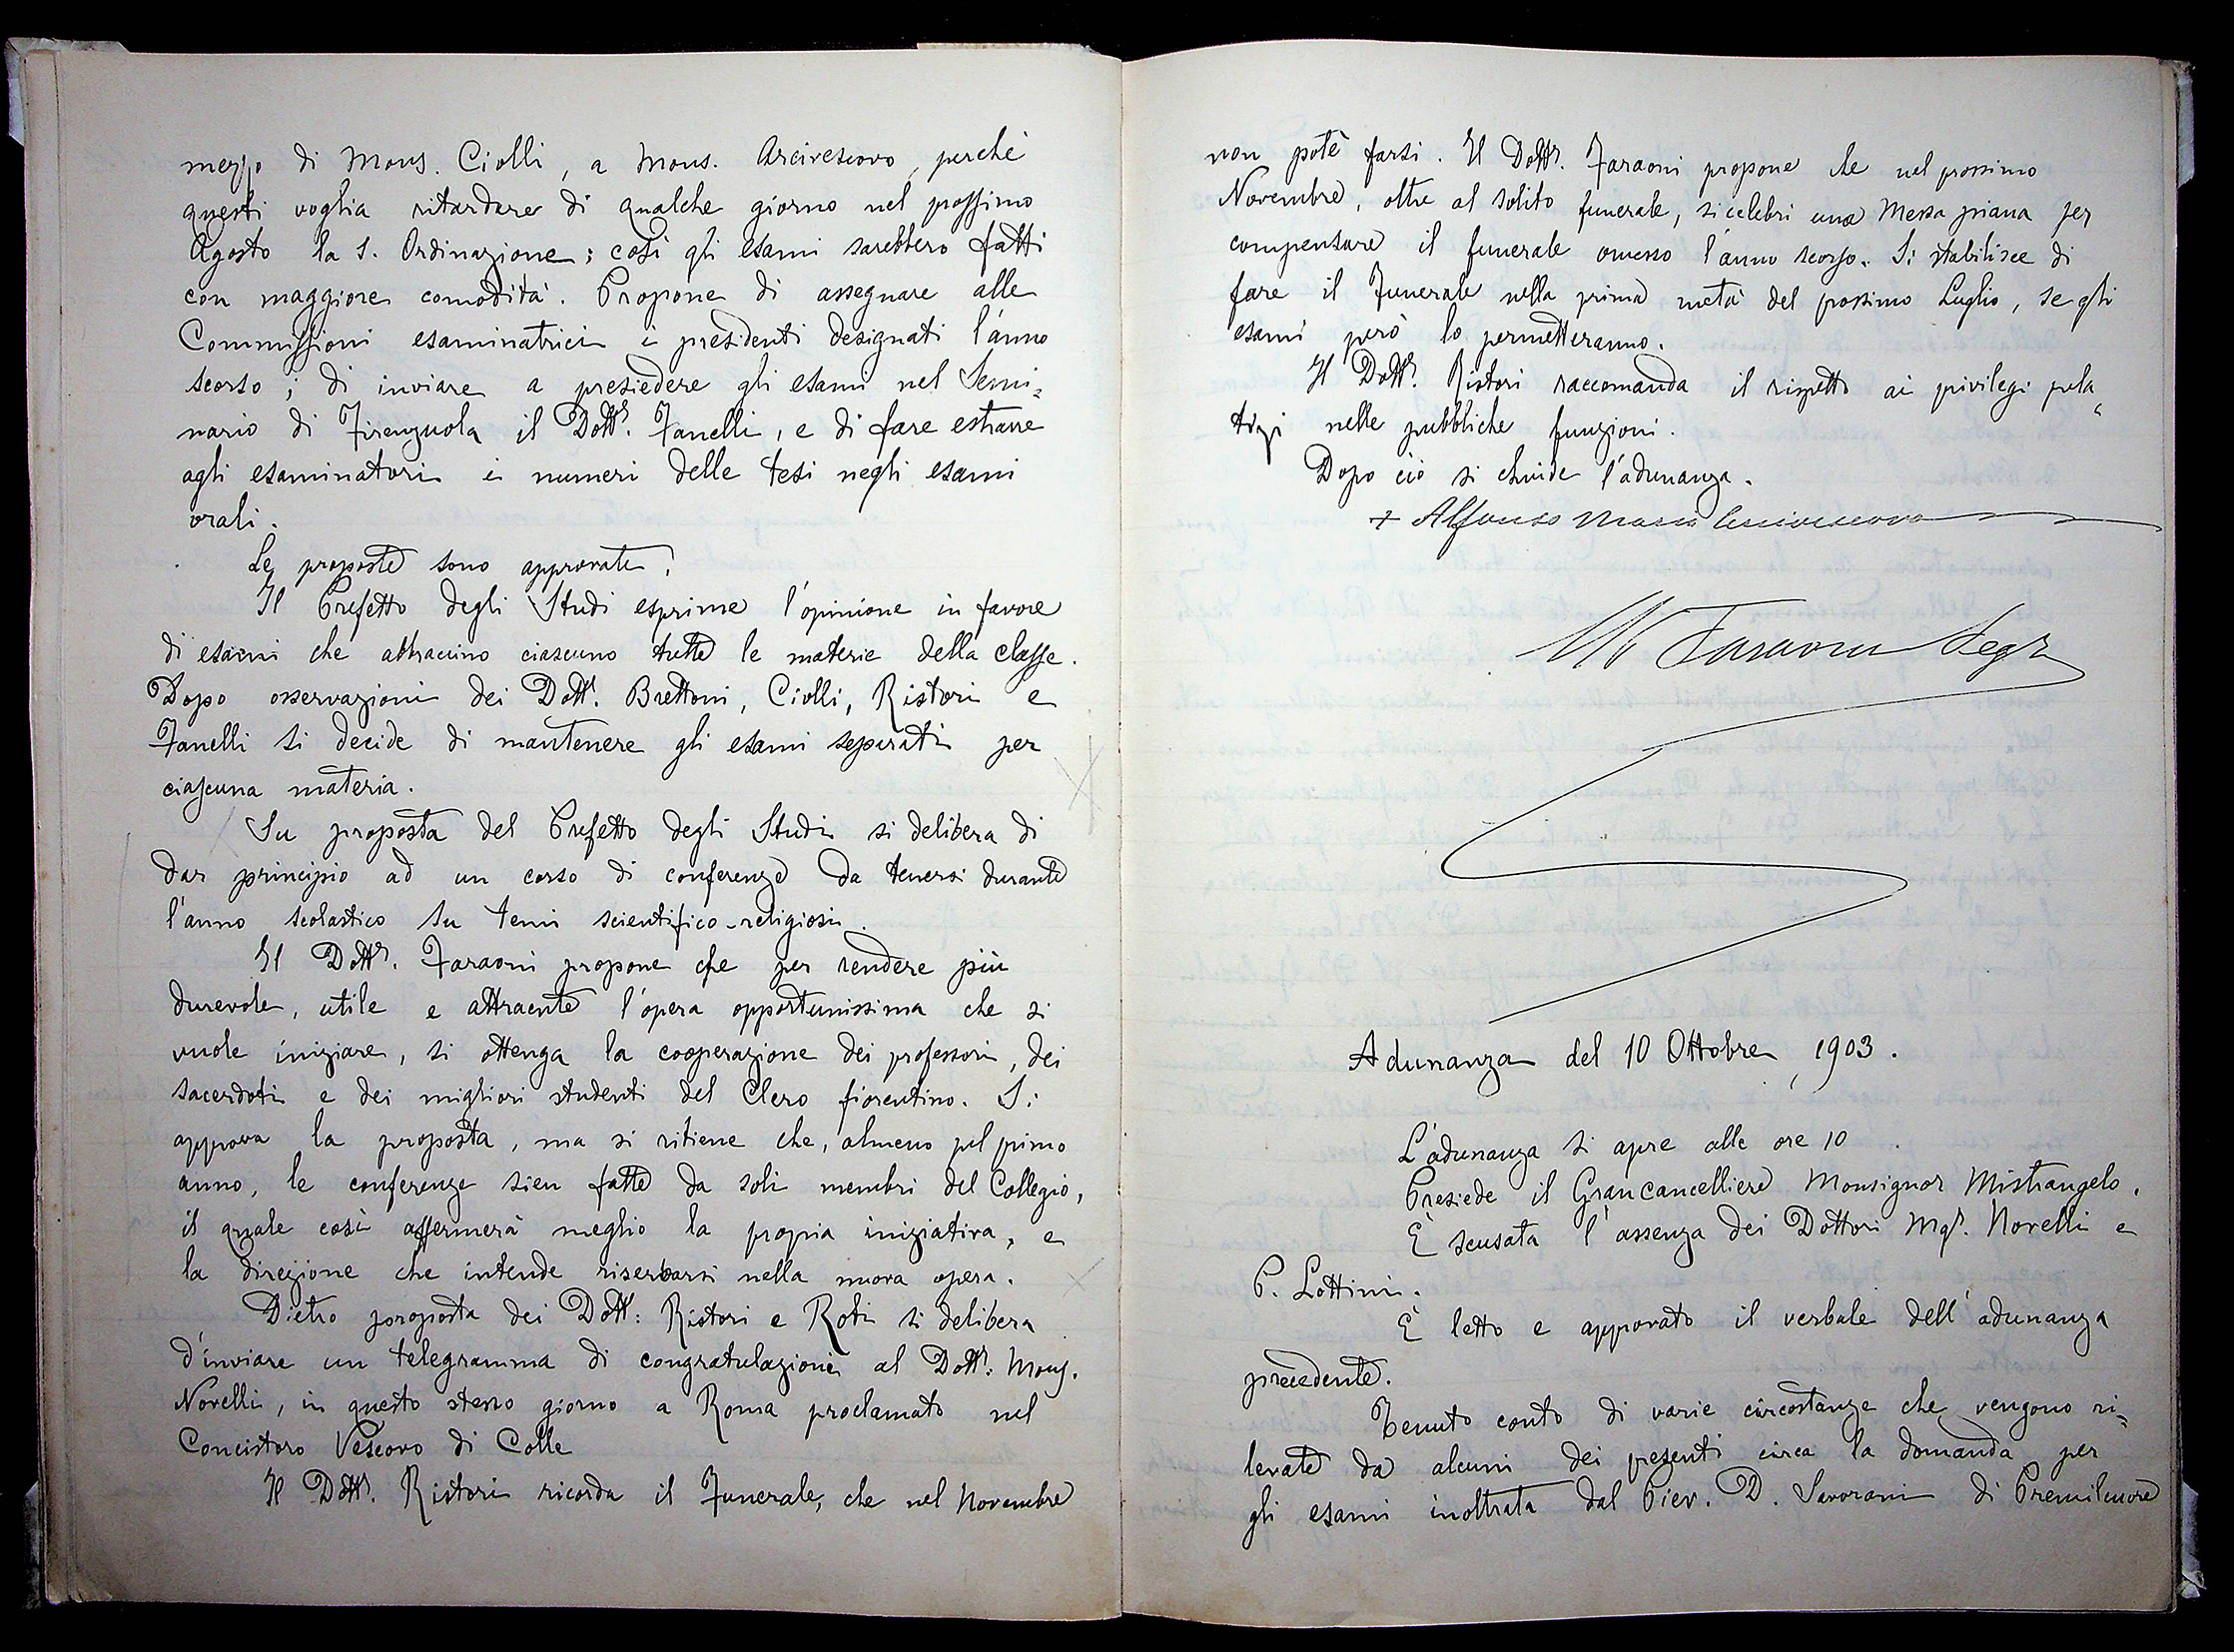 mezzo di Mons. Ciolli, a Mons. Arcivescovo, perchè
questi voglia ritardare di qualche giorno nel prossimo
Agosto la S. Ordinazione; così gli esami sarebbero fatti
con maggiore comodità. Propone di assegnare alle
Commissioni esaminatrici i presidenti designati l'anno
scorso; di inviare a presiedere gli esami nel Semi=
nario di Firenzuola il Dottr. Fanelli, e di fare estrarre
agli esaminatori i numeri delle tesi negli esami
orali.
Le proposte sono approvate.
Il Prefetto degli Studi esprime l'opinione in favore
di esami che abbraccino ciascuno tutte le materie della classe.
Dopo osservazioni dei Dott. Brettoni, Ciolli, Ristori e
Fanelli si decide di mantenere gli esami separati per
ciascuna materia.
Su proposta del Prefetto degli Studi si delibera di
dar principio ad un corso di conferenze da tenersi durante
l'anno scolastico su temi scientifico-religiosi.
Il Dottr. Faraoni propone che per rendere più
durevole, utile e attraente l'opera opportunissima che si
vuole iniziare, si ottenga la cooperazione dei professori, dei
sacerdoti e dei migliori studenti del Clero fiorentino. Si
approva la proposta, ma si ritiene che, almeno pel primo
anno, le conferenze sien fatte da soli membri del Collegio,
il quale così affermerà meglio la propria iniziativa, e
la direzione che intende riserbarsi nella nuova opera.
Dietro proposta dei Dott: Ristori e Roti si delibera
d'inviare un telegramma di congratulazione al Dottr: Mons.
Novelli, in questo stesso giorno a Roma proclamato nel
Concistoro Vescovo di Colle
Il Dottr. Ristori ricorda il Funerale, che nel Novembre
non potè farsi. Il Dottr. Faraoni propone che nel prossimo
Novembre, oltre al solito funerale, si celebri una Messa piana per
compensare il funerale omesso l'anno scorso. Si stabilisce di
fare il Funerale nella prima metà del prossimo Luglio, se gli
esami però lo permetteranno.
Il Dottr. Ristori raccomanda il rispetto ai privilegi pela=
tizi nelle pubbliche funzioni.
Dopo ciò si chiude l'adunanza.
+ Alfonso Maria Arcivescovo
Faraoni Segr
Adunanza del 10 Ottobre 1903.
L'adunanza si apre alle ore 10.
Presiede il Gran Cancelliere Monsignor Mistrangelo.
È scusata l'assenza dei Dottori Mgr. Novelli e
P. Lottini.
È letto e approvato il verbale dell'adunanza
precedente.
Tenuto conto di varie circostanze che vengono ri=
levate da alcuni dei presenti circa la domanda per
gli esami inoltrata dal Piev. D. Savorani di Premilcuore